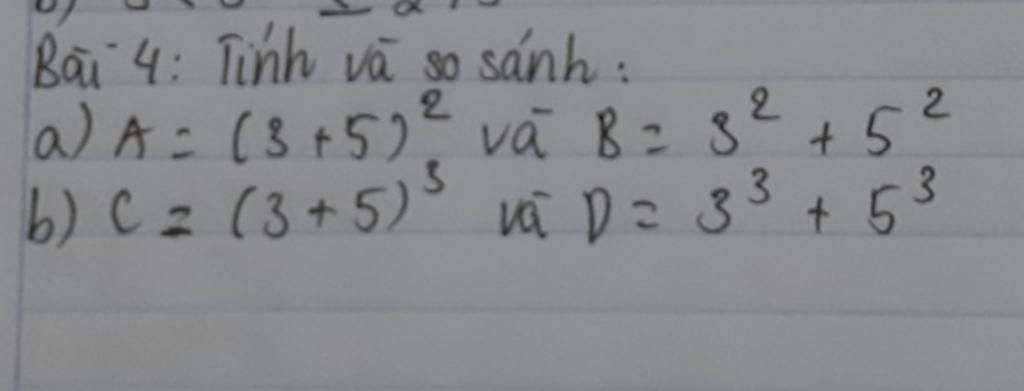 Bài 4: Tính và so sánh:
a) A = (3 + 5)² và B = 3² + 5²
b) C = (3 + 5)³ và D = 3³ + 5³